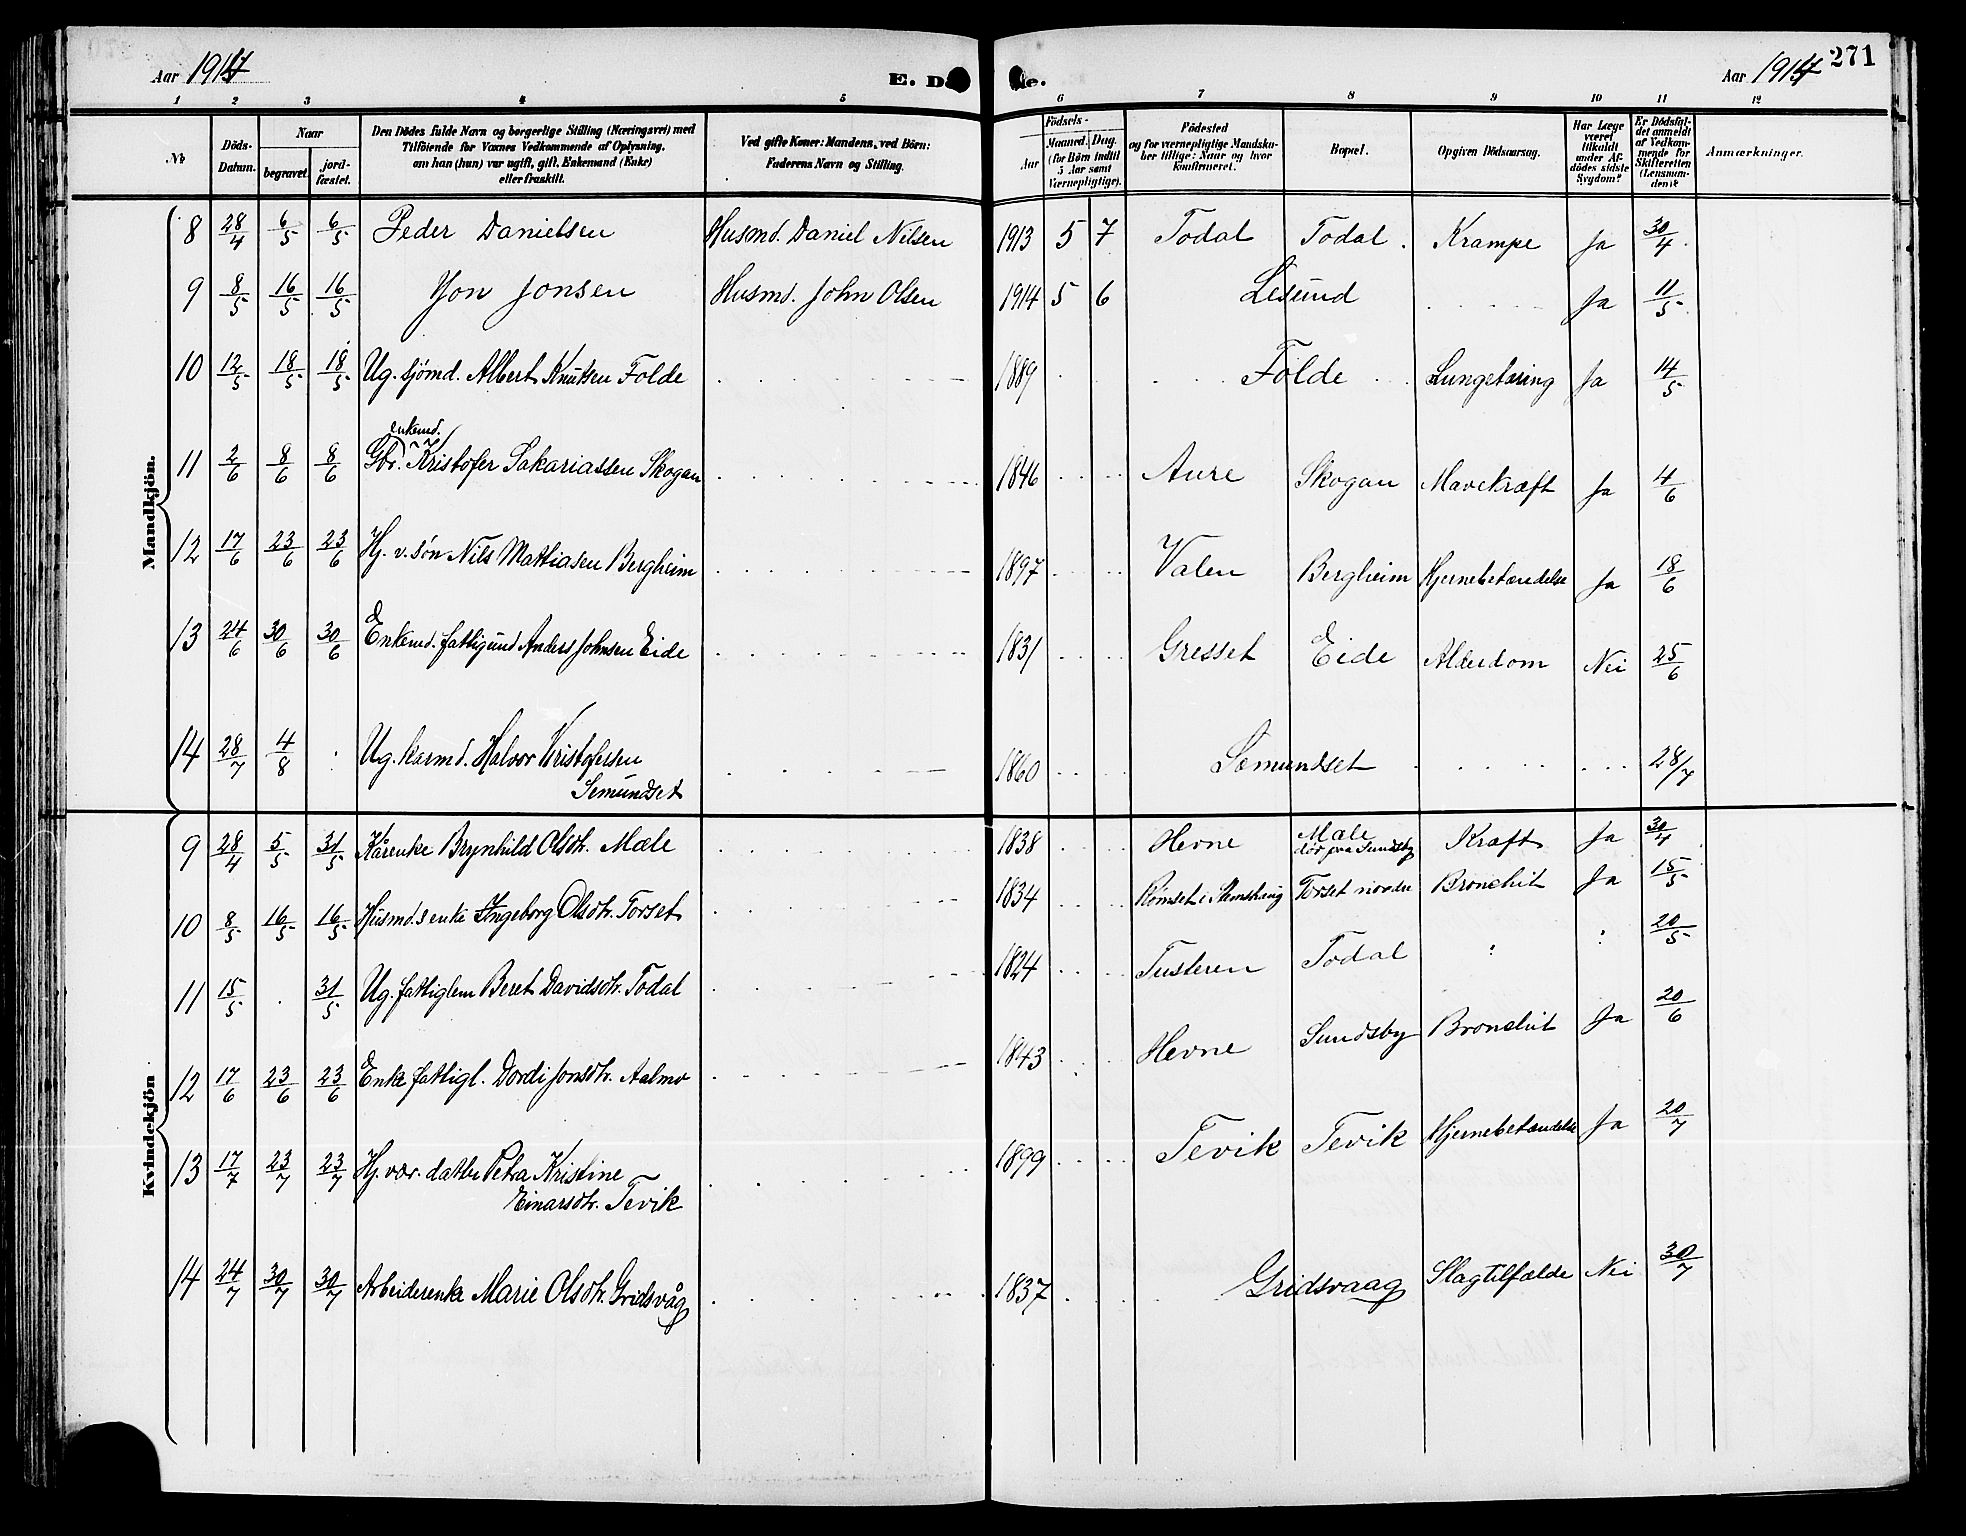 Aar 1914
E. Dø
de.
Aar 1914
271
1 2 3 4 5 6 7 8 9 10 11 12
No
Döds-Datum.
Naar
begravet
jord-fæstet.
Den Dödes fulde Navn og borgerlige Stilling (Næringsvei) med
Tilföiende for Voxnes Vedkommende af Oplysning,
om han (hun) var ugift, gift, Enkemand (Enke)
eller fraskilt.
Ved gifte Koner: Mandens, ved Börn:
Faderens Navn og Stilling.
Födsels-
Aar
Maaned. Dag.
(for Börn indtil
5 Aar samt
Værnepligtige).
Födested
og for værnepligtige Mandska-
ber tillige: Naar og hvor
konfirmeret.
Bopæl.
Opgiven Dödsaarsag.
Har Læge
været
tilkaldt
under Af-
dödes sidste
Sygdom?
Er Dödsfal-
det anmeldt
af Vedkom-
mende for
Skifteretten
(Lensman-
den)?
Anmærkninger.
Mandkjön.
8 28/4 6/5 6/5 Peder Danielsen Husmd. Daniel Nilsen 1913 5 7 Todal Todal. Krampe Ja 30/4
9 8/5 16/5 16/5 Jon Jonsen Husmd. John Olsen 1914 5 6 Lesund Ja 11/5
10 12/5 18/5 18/5 Ug. sjömd. Albert Knutsen Folde 1889 Folde Lungetæring Ja 14/5
enkemd.
11 2/6 8/6 8/6 Gbr. Kristofer Sakariassen Skogan 1846 Aure Skogan Mavekræft Ja 4/6
12 17/6 23/6 23/6 Hj. v. søn Nils Mattiasen Bergheim 1897 Valen Bergheim Hjernebetændelse Ja 18/6
13 24/6 30/6 30/6 Enkemd. fattiglind Anders Johnsen Eide 1831 Gresset Eide Alderdom Nei 25/6
14 28/7 4/8 Ug. karmd. Halvor Kristofersen
Semundset 1860 Semundset 28/7
Kvindekjön
9 28/4 5/5 31/5 Kårenke Brynhild Olsdtr. Mæle 1838 Hevne Mæle
dør paa Sundsby Kræft Ja 30/4
10 8/5 16/5 16/5 Husmdsenke Ingeborg Olsdtr. Torset 1834 Rømset i Stemshaug Torset nordre Bronchit Ja 15/5
11 15/5 31/5 Ug. fattiglem Beret Davidsdtr. Todal 1824 Tusteren Todal 20/5
12 17/6 23/6 23/6 Enke fattigl. Dordi Jonsdtr. Aalmo 1843 Hevne Sundsby Bronchit Ja 20/6
13 17/7 23/7 23/7 Hj. vær. datter Petra Kristine
Einarsdtr. Tevik 1899 Tevik Tevik Hjernebetændelse Ja 20/7
14 24/7 30/7 30/7 Arbeiderenke Marie Olsdtr. Gridsvåg 1837 Gridsvaag Slagtilfælde Nei 30/7